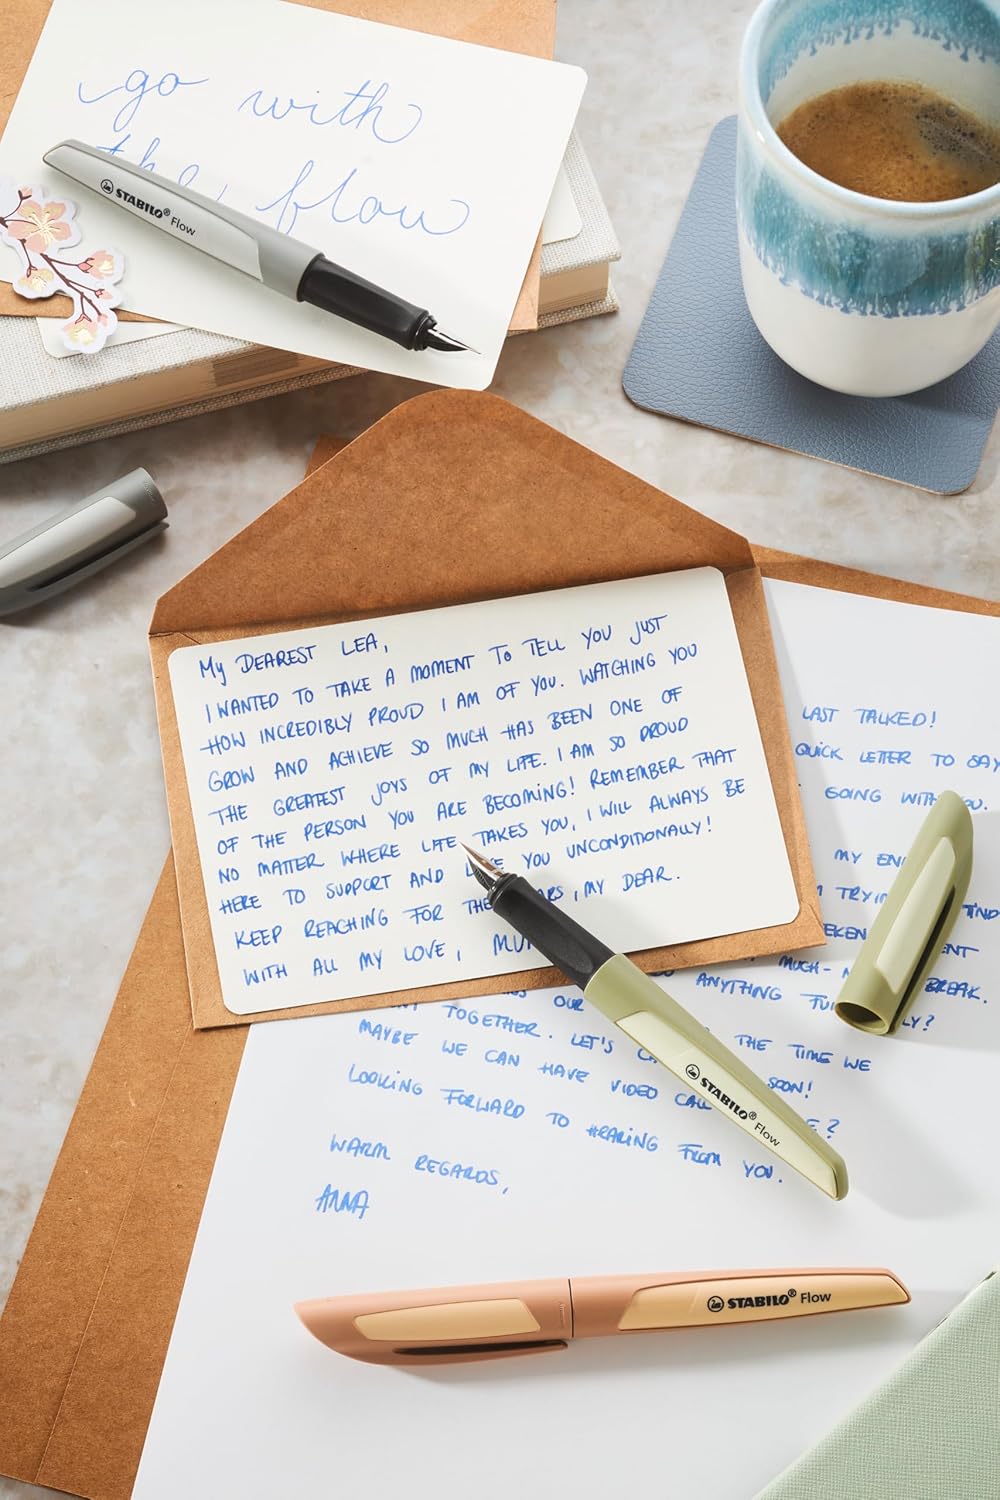 go with
the flow
STABILO® Flow
My DEAREST LEA,
I WANTED TO TAKE A MOMENT TO TELL YOU JUST
HOW INCREDIBLY PROUD I AM OF YOU. WATCHING YOU
GROW AND ACHIEVE SO MUCH HAS BEEN ONE OF
THE GREATEST JOYS OF MY LIFE. I AM SO PROUD
OF THE PERSON YOU ARE BECOMING! REMEMBER THAT
NO MATTER WHERE LIFE TAKES YOU, I WILL ALWAYS BE
HERE TO SUPPORT AND YOU UNCONDITIONALLY!
KEEP REACHING FOR THE , MY DEAR.
WITH ALL MY LOVE,
LAST TALKED!
QUICK LETTER TO SAY
GOING WITH
MY
MUCH-
ANYTHING BREAK.
OUR
TOGETHER. LET'S THE TIME WE
MAYBE WE CAN HAVE VIDEO CALL SOON!
LOOKING FORWARD TO HEARING FROM YOU.
WARM REGARDS,
ANNA
STABILO® Flow
STABILO® Flow